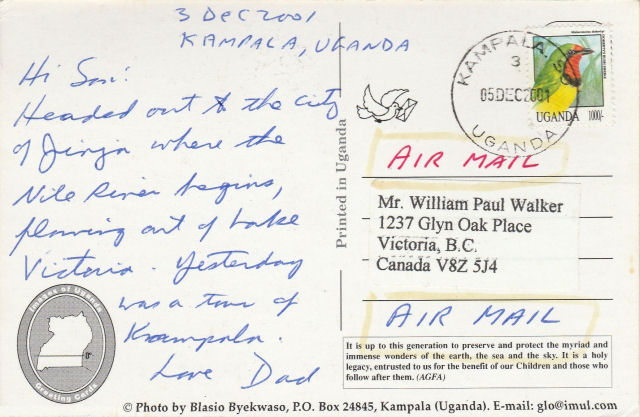 3 DEC 2001
KAMPALA, UGANDA
Hi Son:
Headed out to the city
of Jinja where the
Nile River begins,
flowing out of Lake
Victoria. Yesterday
was a tour of
Kampala.
Love Dad
Images of Uganda
Greeting Cards
Printed in Uganda
KAMPALA
3
05DEC2001
UGANDA
UGANDA 1000/-
AIR MAIL
Mr. William Paul Walker
1237 Glyn Oak Place
Victoria, B.C.
Canada V8Z 5J4
AIR MAIL
It is up to this generation to preserve and protect the myriad and
immense wonders of the earth, the sea and the sky. It is a holy
legacy, entrusted to us for the benefit of our Children and those who
follow after them. (AGFA)
© Photo by Blasio Byekwaso, P.O. Box 24845, Kampala (Uganda). E-mail: glo@imul.com